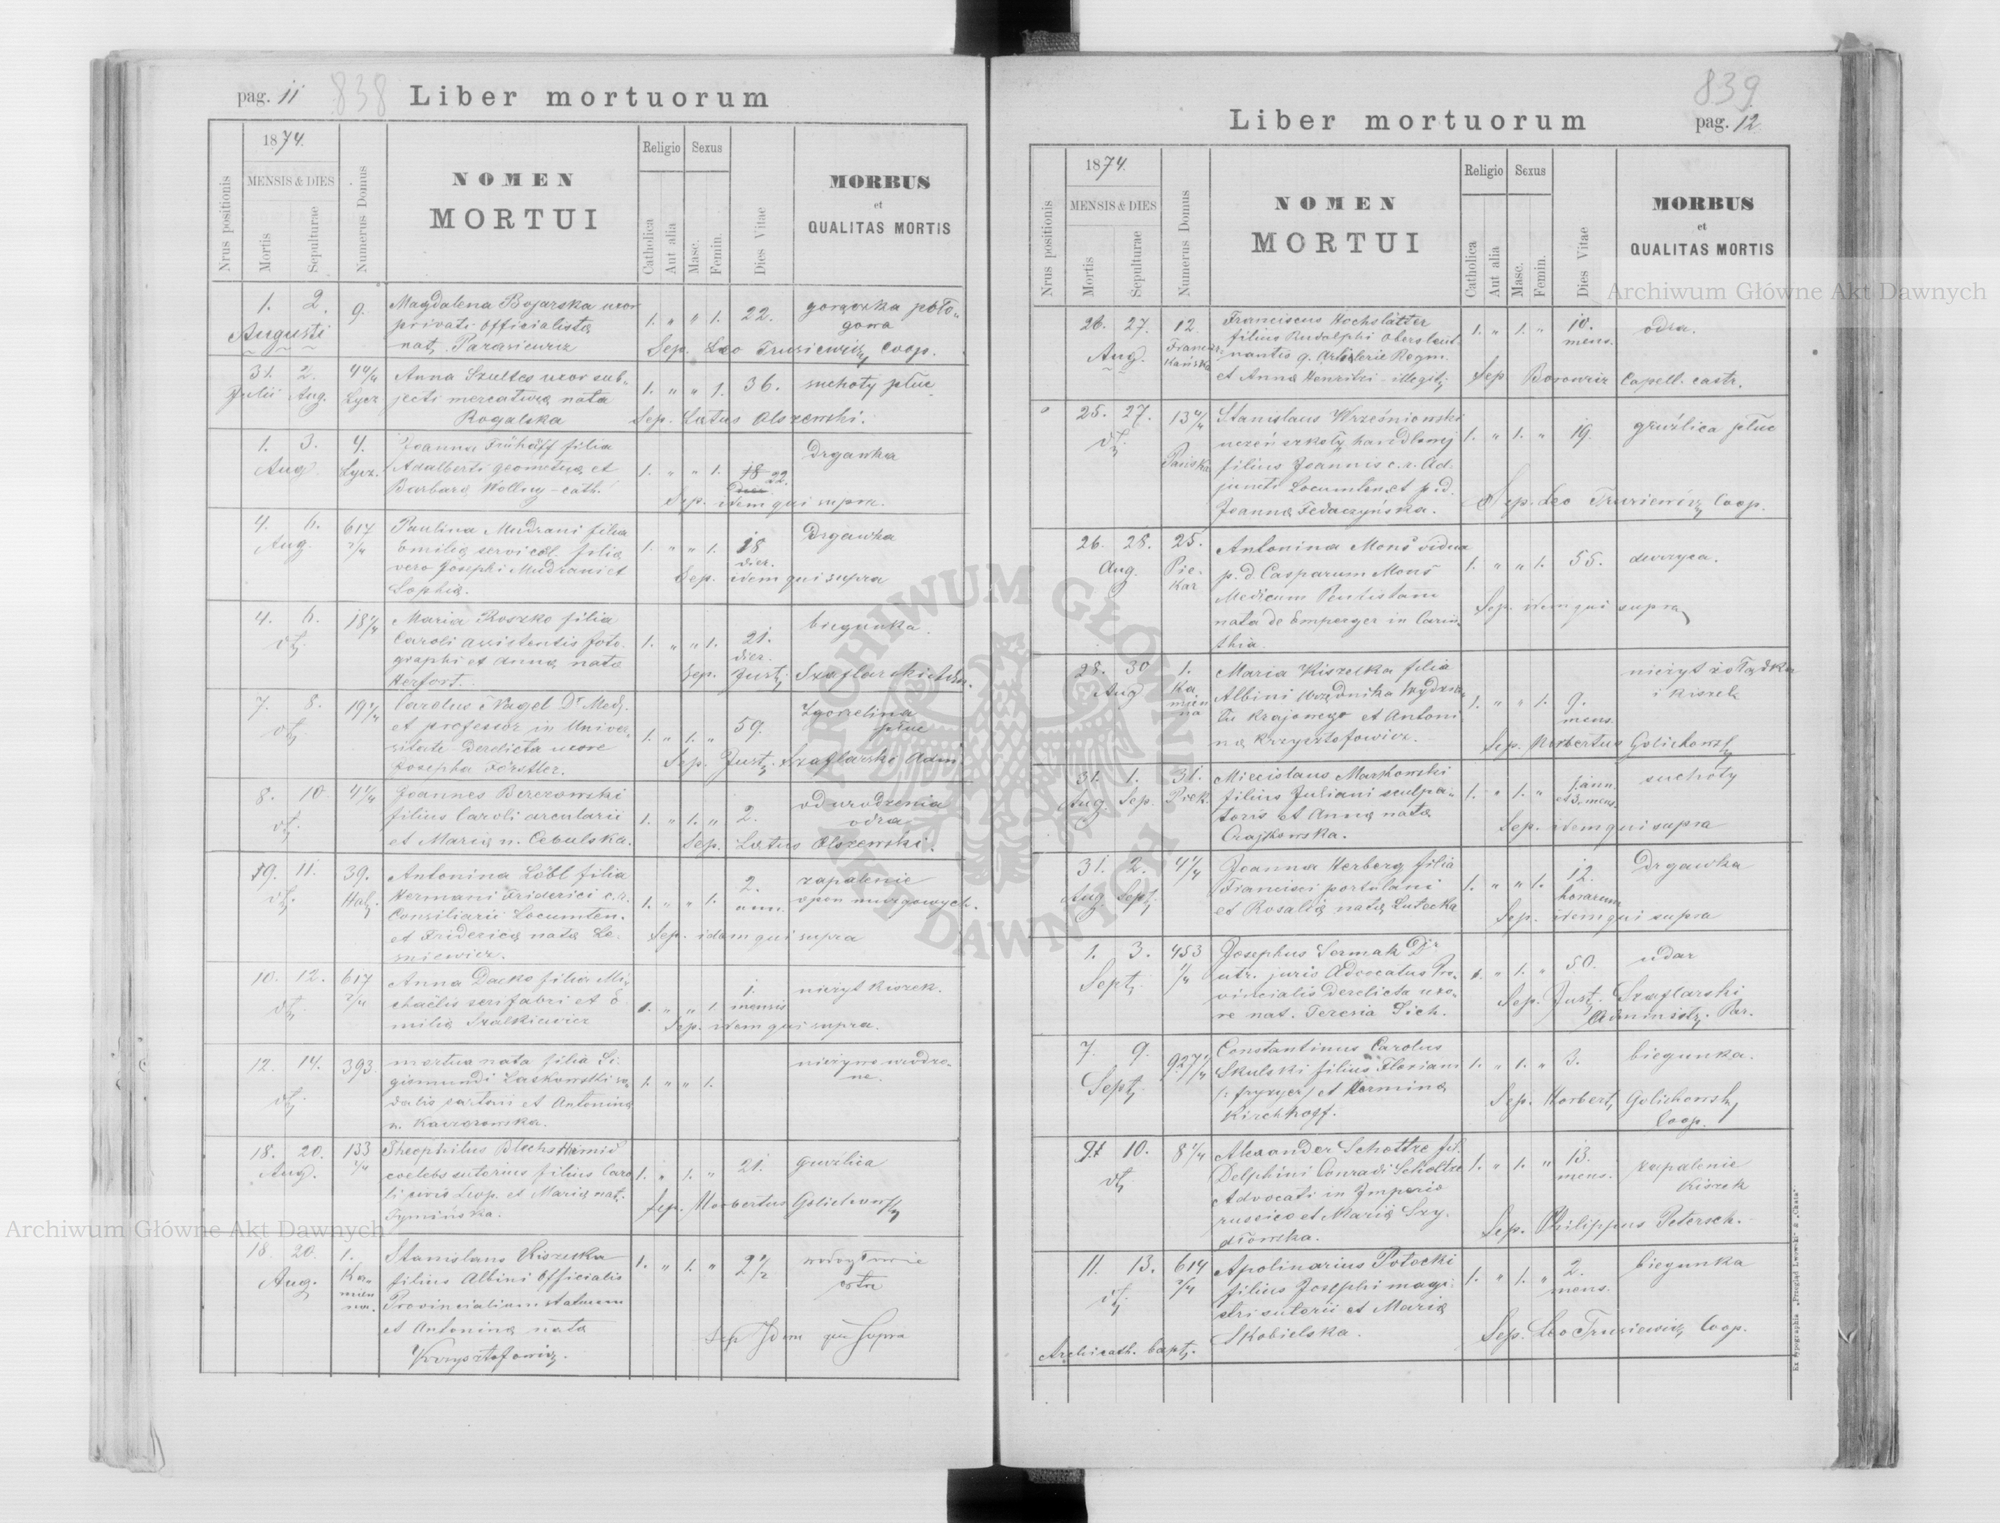 pag. 11
838
Liber mortuorum
Nrus positionis
1874.
MENSIS & DIES
Mortis
Sepulturae
Numerus Domus
NOMEN
MORTUI
Religio
Catholica
Aut alia
Sexus
Masc.
Femin.
Dies Vitae
MORBUS
et
QUALITAS MORTIS
1. 2. 9. Magdalena Bojarska uxor 1. " " 1. 22. gorączka poło-
Augusti privati officialistę gowa
nat.
Sep. Leo Trusiewicz Coop.
31. 2. 4 4/4 Anna Szultes uxor sub- 1. " " 1. 36. suchoty płuc
Julii Aug. Lycz jecti mercaturę nata
Rogalska Sep. Lætus Olszewski.
1. 3. 4. Joanna filia 1. " " 1. 22. Drgawka
Aug. Lycz. Adalberti geometrę et
Barbarę Wolley - cath. Sep. idem qui supra.
4. 6. 617 Paulina Mudrani filia 1. " " 1. 18 Drgawka
Aug. 2/4 Emilię filia dier.
vero Josephi Mudrani et Sep. idem qui supra
Sophię.
4. 6. 18 4/4 Maria Roszko filia 1. " " 1. 21. biegunka.
dt. Caroli assistentis foto- dier.
graphi et Annę nata Sep. Just. Szaflarski Adm.
Herfort.
7. 8. 19 4/4 Carolus Nagel Dr Med. 1. " 1. " 59. Zgorzelina
dt. et professor in Univer- płuc
sitate derelicta uxore Sep. Just. Szaflarski Adm.
Josepha Förstler.
8. 10 4 4/4 Joannes Berezowski 1. " 1. " 2. od urodzenia
dt. filius Caroli arcularii odra
et Marię n. Cebulska. Sep. Lætus Olszewski.
9. 11. 39. Antonina Löbl filia 1. " " 1. 2. zapalenie
dt. Hal. Hermani Friderici c.r. ann. opon mózgowych.
Consiliarii Locumten.
et Fridericę nata Le- Sep. idem qui supra
sniewicz.
10. 12. 617 Anna Dacko filia Mi- 1. " " 1. 1. nieżyt kiszek.
dt. 2/4 chaelis serifabri et E- mensis
milię Szalkiewicz Sep. idem qui supra.
12. 14. 393. mortua nata filia Si- 1. " " 1. nieżywo urodzo-
dt. gismundi Laskowski so- ne.
dalis sartorii et Antoninę
n. Kaczorowska.
18. 20. 133 Theophilus Blechschmid 1. " 1. " 21. gruźlica
Aug. 2/4 coelebs sutorius filius Caro
li civis Leop. et Marię nat. Sep. Norbertus Golichowski
18. 20. 1. Stanislaus Kiszelka 1. " 1. " 2 1/2
Aug. Ka- filius Albini officialis
mien Provincialium statuum
na. et Antoninę nata Sep Idem qui Supra
Krzysztofowicz.
839
Liber mortuorum
pag. 12
Nrus positionis
1874.
MENSIS & DIES
Mortis
Sepulturae
Numerus Domus
NOMEN
MORTUI
Religio
Catholica
Aut alia
Sexus
Masc.
Femin.
Dies Vitae
MORBUS
et
QUALITAS MORTIS
26. 27. 12. Franciscus Hochslätter 1. " 1. " 10. odra.
Aug. Francisz- filius Rudolphi Oberslieut- mens.
kańska nantis 9. Artilerie Regm.
et Anna - illegit. Sep Borowicz Capell. castr.
25. 27. 13 4/4 Stanislaus Wrześniowski 1. " 1. " 19. gruźlica płuc
dt. Pańska uczeń szkoły handlowej
filius Joannis c.r. Ad-
juncti Locumten. et p.d. Sep. Leo Trusiewicz Coop.
Joanna Fedaczyńska.
26. 28. 25. Antonina Mons vidua 1. " " 1. 55.
Aug. Pie- p.d. Casparum Mons
kar Medicum Dentistam Sep. idem qui supra
nata de Emperger in Carin-
thia.
28. 30 1. Maria Kiszelka filia 1. " " 1. 9. nieżyt żołądka
Aug Ka- Albini Urzędnika Wydzia- mens. i kiszek
mien łu krajowego et Antoni-
na nę Krzysztofowicz. Sep. Norbertus Golichowski
31. 1. 31. Miecislaus Markowski 1. " 1. " 1. ann. suchoty
Aug. Sep. Piek. filius Juliani sculpa- et 3. mens.
toris et Annę nata Sep. idem qui supra
Czajkowska.
31. 2. 4 4/4 Joanna Herberg filia 1. " " 1. 12. Drgawka
Aug. Sept. Francisci portulani horarum
et Rosalię nata Lutecka Sep. idem qui supra
1. 3. 453 Josephus Sermak Dr 1. " 1. " 50. udar
Sept. 1/4 utr. juris Advocatus Pro-
vincialis derelicta uxo- Sep. Just. Szaflarski
re nat. Teresia Sich. Administ. Par.
7. 9. 927 1/4 Constantinus Carolus 1. " 1. " 3. biegunka.
Sept. Skulski filius Floriani
(: fryzyer) et Herminę Sep. Norbert. Golichowski
Kirchhoff. Coop.
10. 8 4/4 Alexander Scholtze fil. 1. " 1. " 13. zapalenie
dt. Delphini Conradi Scholtze mens. kiszek
Advocati in Imperio
russico et Marię Szy- Sep. Philippus Petersch.
dłowska.
11. 13. 614 Apolinarius Potocki 1. " 1. " 2. biegunka
dt. 2/4 filius Josephi magi- mens.
stri sutorii et Marię
Skobielska. Sep. Leo Trusiewicz Coop.
Archicath. bapt.
Ex typographia „Przegląd Lwowski"
Archiwum Główne Akt Dawnych
Archiwum Główne Akt Dawnych
ARCHIWUM GŁÓWNE AKT DAWNYCH